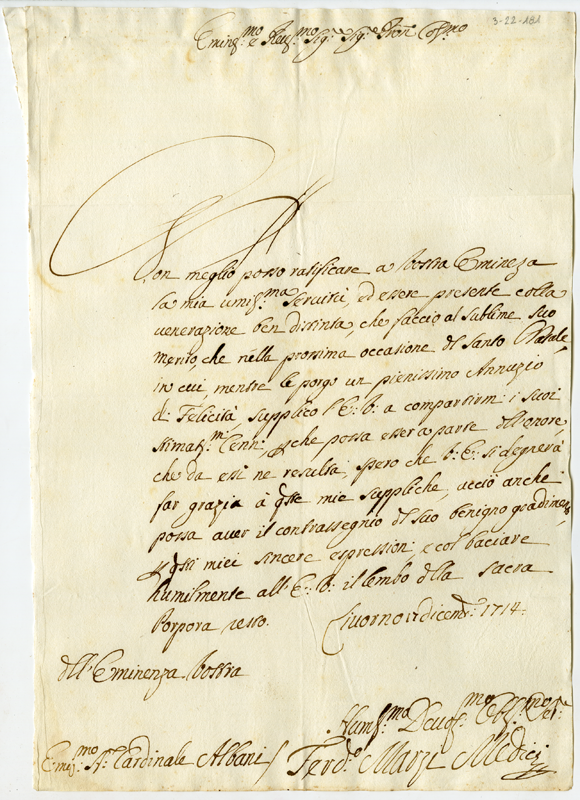 3-22-181
Eminẽ.mo e Reuẽ.mo Sig.r Sig.r Pron Col.mo
Non meglio posso ratificare a Vostra Emineza
la mia umiss.ma Servitù, ed essere presente colla
venerazione ben distinta, che faccio al sublime suo
merito, che nella prossima occasione del Santo Natale,
in cui, mentre le porgo un pienissimo Annuzio
di Felicità supplico l'E: V: a compartirmi i suoi
stimat.mi Cenni, perche possa esser à parte dell'onore,
che da essi ne resulta, spero che V: E: si degnerà
far grazia à queste mie suppliche, acciò anche
possa auer il contrassegnio del suo benigno gradimento
per questi miei sincere espressioni, e col baciare
humilmente all'E: V: il lembo della sacra
Porpora resto. Liuorno 17 dicemb.e 1714.
dell'Eminenza Vostra
Hum.mo Deuot.mo Obb.mo Ser.e
E:mẽ.mo S.r Cardinale Albani
Ferd.o Marzi Medici